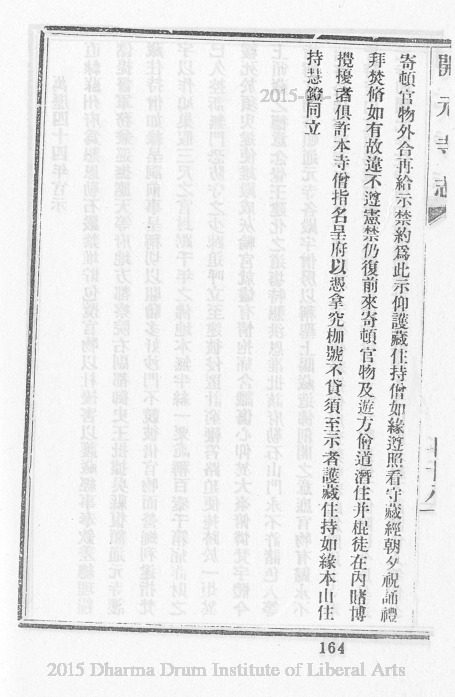 開元寺志
寄頓官物外合再給示禁約爲此示仰護藏住持僧如緣遵照看守藏經朝夕祝誦禮
拜焚脩如有故違不遵憲禁仍復前來寄頓官物及遊方僧道潛住并棍徒在內賭博
攪擾者俱許本寺僧指名呈府以憑拿究枷號不貸須至示者護藏住持如緣本山住
持慧鐙同立
164
2015 Dharma Drum Institute of Liberal Arts